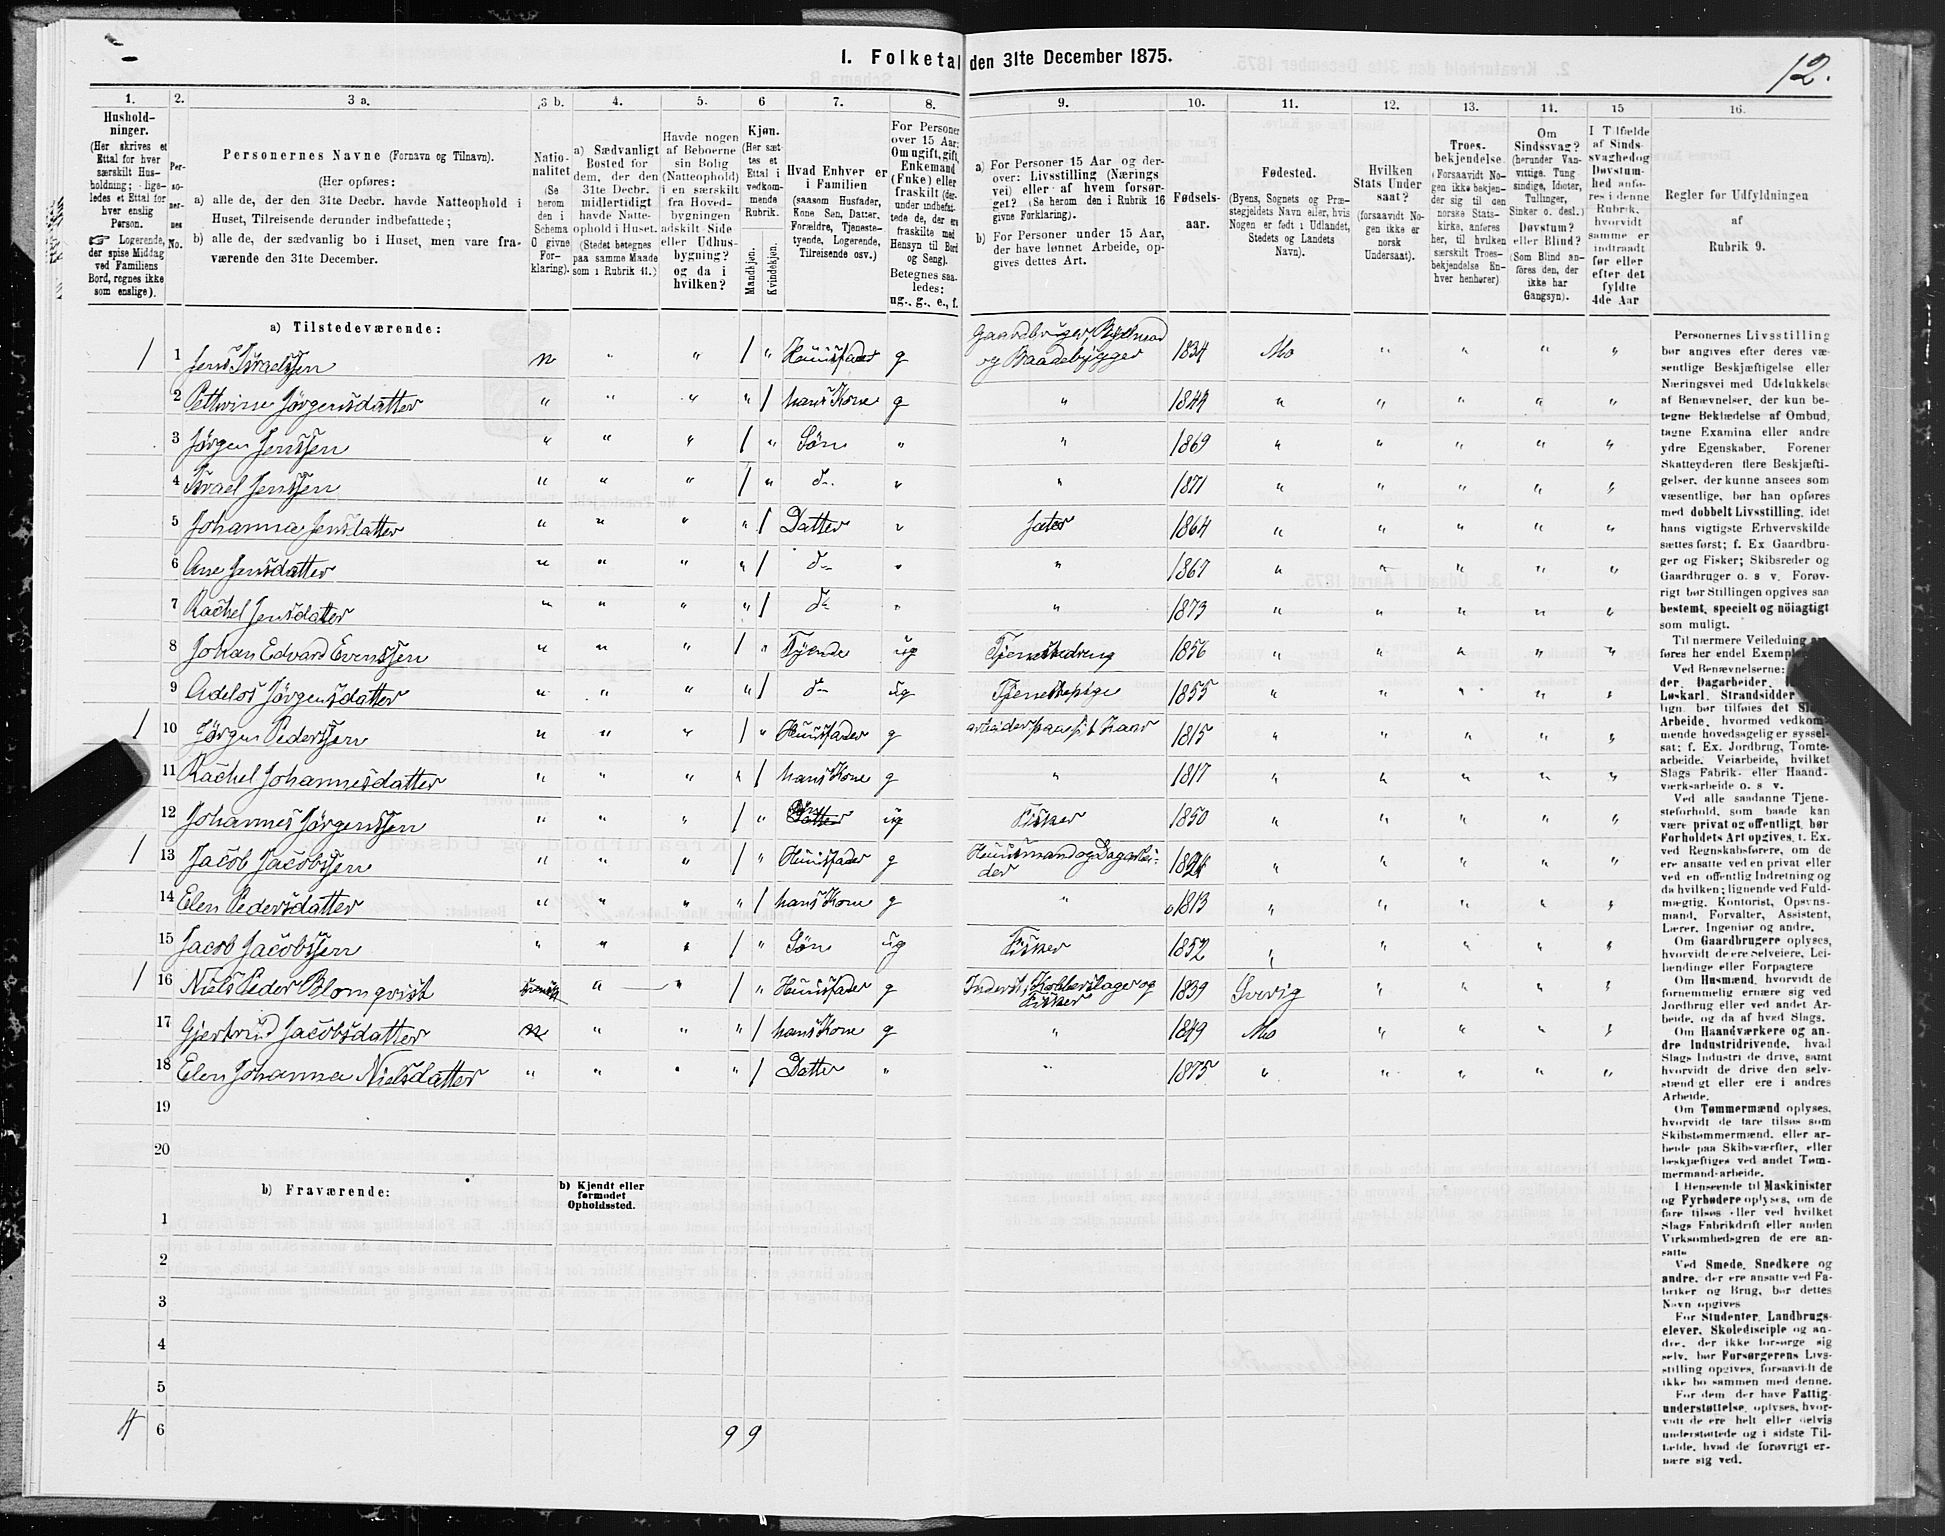 12.
I. Folketal den 31te December 1875.
1. 2. 3 a. 3 b. 4. 5. 6 7. 8. 9. 10. 11. 12. 13. 14. 15 16.
Hushold-
ninger.
(Her skrives et
Ettal for hver
særskilt Hus-
holdning; lige-
ledes et Ettal for
hver enslig
Person.
☞ Logerende,
der spise Middag
ved Familiens
Bord, regnes ikke
som enslige).
Per-
so-
ner-
nes
No.
Personernes Navne (Fornavn og Tilnavn).
(Her opføres:
a) alle de, der den 31te Decbr. havde Natteophold i
Huset, Tilreisende derunder indbefattede;
b) alle de, der sædvanlig bo i Huset, men vare fra-
værende den 31te December.
Natio-
nalitet
(Se
herom
den i
Schema
O givne
For-
klaring).
a) Sædvanligt
Bosted for
dem, der den
31te Decbr.
midlertidigt
havde Natte-
ophold i Huset.
(Stedet betegnes
paa samme Maade
som i Rubrik 11.)
Havde nogen
af Beboerne
sin Bolig
(Natteophold)
i en særskilt
fra Hoved-
bygningen
adskilt Side
eller Udhus-
bygning?
og da i
hvilken?
Kjøn.
(Her sæt-
tes et
Ettal i
vedkom-
mende
Rubrik.
Mandkjøn.
Kvindekjøn.
Hvad Enhver er
i Familien
(saasom Husfader,
Kone Søn, Datter,
Forældre, Tjeneste-
tyende, Logerende,
Tilreisende osv.)
For Personer
over 15 Aar:
Om ugift, gift,
Enkemand
(Enke) eller
fraskilt (der-
under indbefat-
tede de, der ere
fraskilte med
Hensyn til Bord
og Seng).
Betegnes saa-
ledes:
ug., g., e., f.
a) For Personer 15 Aar og der-
over: Livsstilling (Nærings
vei) eller af hvem forsør-
get? (Se herom den i Rubrik 16
givne Forklaring).
b) For Personer under 15 Aar,
der have lønnet Arbeide, op-
gives dettes Art.
Fødsels-
aar.
Fødested.
(Byens, Sognets og Præ-
stegjeldets Navn eller, hvis
Nogen er født i Udlandet,
Stedets og Landets
Navn).
Hvilken
Stats Under
saat?
(forsaavidt No-
gen ikke er
norsk
Undersaat).
Troes-
bekjendelse.
(Forsaavidt No-
gen ikke bekjen-
der sig til den
norske Stats-
kirke, anføres
her, til hvilken
særskilt Troes-
bekjendelse En-
hver henhører)
Om
Sindssvag?
(herunder Van-
vittige, Tung
sindige, Idioter,
Tullinger,
Sinker o. desl.)
Døvstum?
eller Blind?
(Som Blind an-
føres den, der
ikke har
Gangsyn).
I Tilfælde
af Sinds-
svaghed og
Døvstum-
hed anfø-
res i denne
Rubrik,
hvorvidt
samme er
indtraadt
før eller
efter det
fyldte
4de Aar
Regler for Udfyldningen
af
Rubrik 9.
a) Tilstedeværende:
1 1 Jens Israelssen n " " 1 " Huusfader g Gaardbruger, og Baadebygger 1834 Mo " " " "
2 Pettrine Jørgensdatter " " " " 1 hans Kone g " 1844 " " " " "
3 Jørgen Jenssen " " " 1 " Søn " " 1869 " " " " "
4 Israel Jenssen " " " 1 " d- " " 1871 " " " " "
5 Johanna Jensdatter " " " " 1 Datter " 1864 " " " " "
6 Ane Jensdatter " " " " 1 d- " " 1867 " " " " "
7 Rachel Jensdatter " " " " 1 d- " " 1873 " " " " "
8 Johan Edvard Evenssen " " " 1 " Tyende ug Tjenestedreng 1856 " " " " "
9 Adelos Jørgensdatter " " " " 1 d- ug Tjenestepige 1855 " " " " "
1 10 Jørgen Pederssen " " " 1 " Huusfader g 1815 " " " " "
11 Rachel Johannesdatter " " " " 1 hans Kone g " 1817 " " " " "
12 Johannes Jørgenssen " " " 1 " Søn ug Fisker 1850 " " " " "
1 13 Jacob Jacobssen " " " 1 " Huusfader g Huusmand og Dagarbei-der " " " " "
14 Elen Pedersdatter " " " " 1 hans Kone g " 1813 " " " " "
15 Jacob Jacobssen " " " 1 " Søn ug Fisker 1852 " " " " "
1 16 Niels Peder Blomqvist " " 1 " Huusfader g Inderst, Kobberslager og Fisker 1839 " " " "
17 Gjertrud Jacobsdatter n " " " 1 hans Kone g " 1849 Mo " " " "
18 Elen Johanna Nielsdatter " " " " 1 Datter " " 1875 " " " " "
19
20
b) Fraværende:
b) Kjendt eller
formodet
Opholdssted.
1
2
3
4
5
4 6 9 9
Personernes Livsstilling
bør angives efter deres væ-
sentlige Beskjæftigelse eller
Næringsvei med Udelukkelse
af Benævnelser, der kun be-
tegne Beklædelse af Ombud,
tagne Examina eller andre
ydre Egenskaber. Forener
Skatteyderen flere Beskjæfti-
gelser, der kunne ansees som
væsentlige, bør han opføres
med dobbelt Livsstilling, idet
hans vigtigste Erhvervskilde
sættes først; f. Ex Gaardbru-
ger og Fisker; Skibsreder og
Gaardbruger o. s v. Forøv-
rigt bør Stillingen opgives saa
bestemt, specielt og nöiagtigt
som muligt.
Til nærmere Veiledning
føres her endel Exempler
Ved Benævnelserne:
der, Dagarbeider,
Løskarl, Strandsidder
lign. bør tilføies det
Arbeide, hvormed vedkom-
mende hovedsagelig er syssel-
sat; f. Ex. Jordbrug, Tomte-
arbeide, Veiarbeide, hvilket
Slags Fabrik- eller Haand-
værksarbeide o. s v.
Ved alle saadanne Tjene-
steforhold, som baade kan
være privat og offentligt, bør
Forholdets Art opgives, t. Ex.
ved Regnskabsførere, om de
ere ansatte ved en privat eller
ved en offentlig Indretning og
da hvilken; lignende ved Fuld-
mægtig, Kontorist, Opsyns-
mand, Forvalter, Assistent,
Lærer, Ingeniør og andre.
Om Gaardbrugere oplyses,
hvorvidt de ere Selveiere, Lei-
lændinge eller Forpagtere
Om Husmænd, hvorvidt de
fornemmelig ernære sig ved
Jordbrug eller ved andet Ar-
beide, og da af hvad Slags.
Om Haandværkere og an-
dre Industridrivende, hvad
Slags Industri de drive, samt
hvorvidt de drive den selv-
stændigt eller ere i andres
Arbeide.
Om Tømmermænd oplyses,
hvorvidt de fare tilsøs som
Skibstømmermænd, eller ar-
beide paa Skibsværfter, eller
beskjæftiges ved andet Tøm-
mermand-arbeide.
I Henseende til Maskinister
og Fyrbødere oplyses, om de
fare tilsøs eller ved hvilket
Slags Fabrikdrift eller anden
Virksomhedsgren de ere an-
satte
Ved Smede, Snedkere og
andre, der ere ansatte ved Fa-
briker og Brug, bør dettes
Navn opgives
For Studenter, Landbrugs-
elever, Skoledisciple og an-
dre, der ikke forsørge sig
selv, bør Forsørgerens Livs-
stilling opgives, forsaavidt de
ikke bo sammen med denne.
For dem, der have Fattig-
understøttelse, oplyses, hvor-
vidt de ere helt eller delvis
understøttede og i sidste Til-
fælde, hvad de forøvrigt er-
nære sig ved.